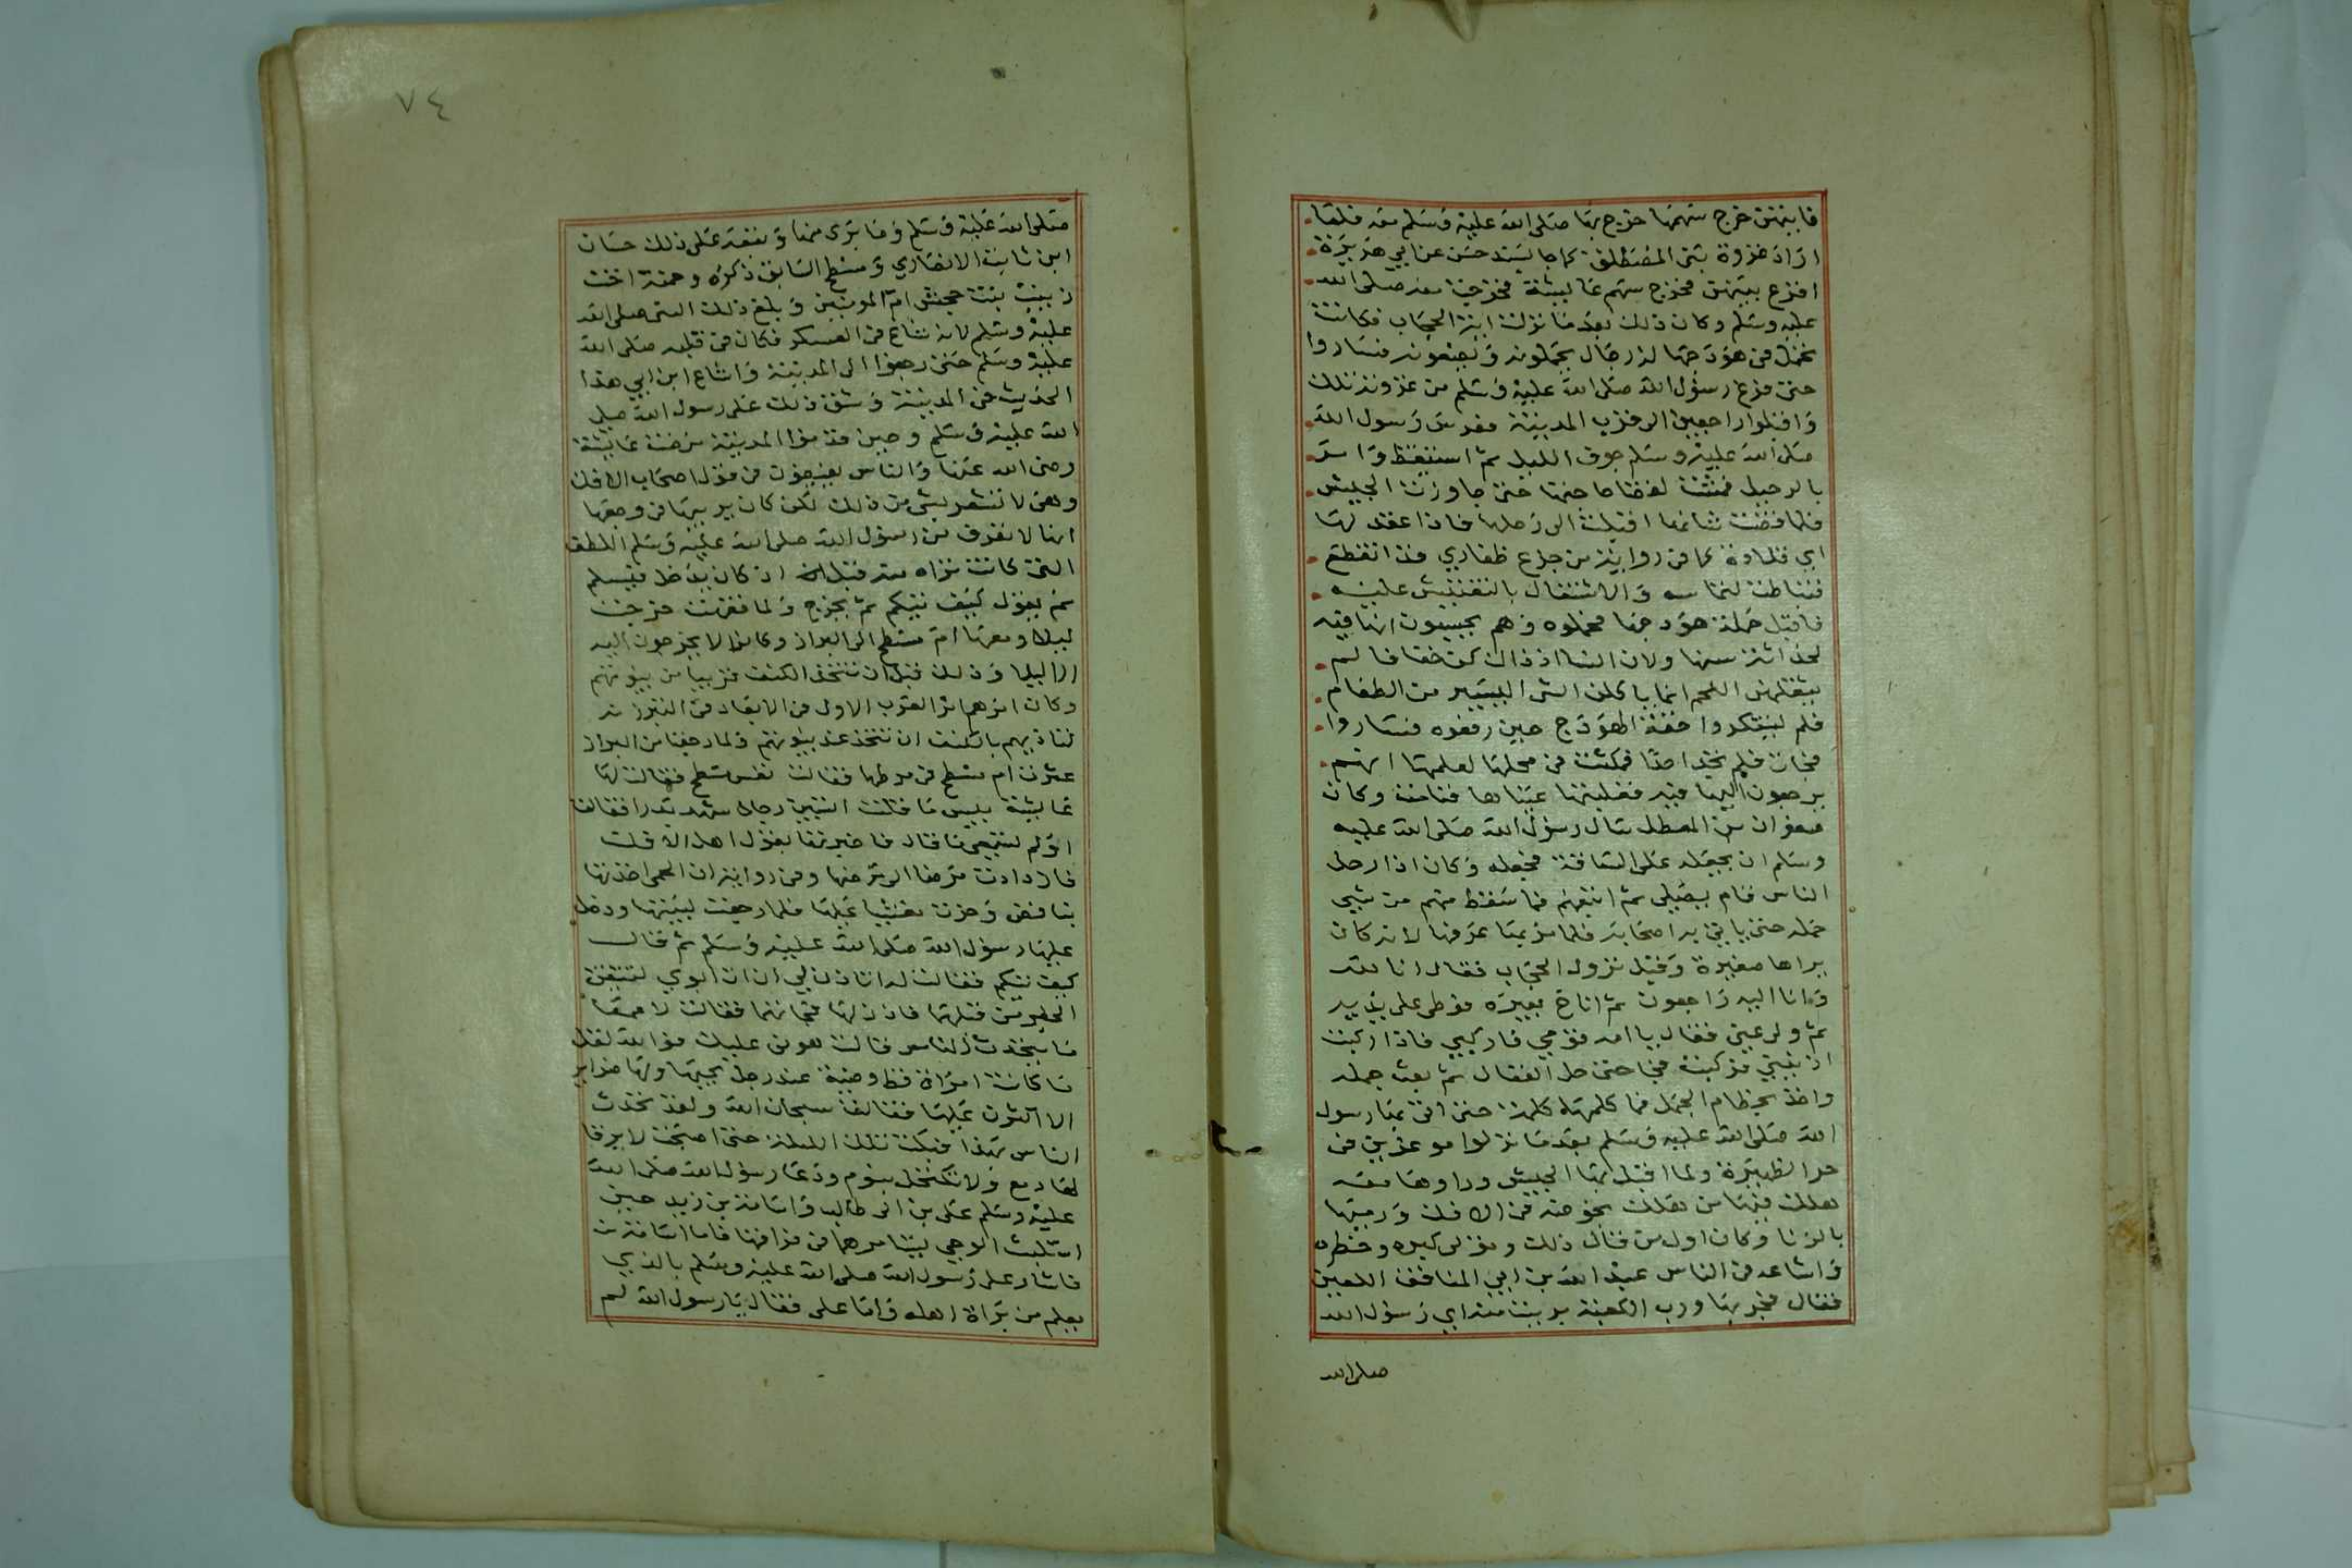 فايتهن خرج سهمها خرج بها صلى الله عليه وسلم معه فلما
اراد غزوة بني المصطلق كما جا بسند حسن عن ابي هريرة
اقرع بينهن فخرج سهم عايشة فخرجت معه صلى الله
عليه وسلم وكان ذلك بعد ما نزلت اية الحجاب فكانت
تحمل في هودجها له رجال يحملونه ويضعونه فساروا
حتى فرغ رسول الله صلى الله عليه وسلم من غزوته تلك
واقبلوا راجعين الى قرب المدينة فعرس رسول الله
صلى الله عليه وسلم جوف الليل ثم استيقظ وامر
بالرحيل فمشت لقضا حاجتها حتى جاوزت الجيش
فلما قضت شانها اقبلت الى رحلها فاذا عقد لها
اي قلادة كما في رواية من جزع ظفاري قد انقطع
فتباطت لالتماسه والاشتغال بالتفتيش عليه
فاقبل حملة هودجها فحملوه وهم يحسبون انها فيه
لحداثة سنها ولان النسا اذ ذاك كن خفافا لم
يثقلهن اللحم انما ياكلن الشي اليسير من الطعام
فلم يستنكروا خفة الهودج حين رفعوه فساروا
فجات فلم تجد احدا فمكثت في محلها لعلمها انهم
يرجعون اليها فيه فغلبتها عيناها فنامت وكان
صفوان بن المعطل سال رسول الله صلى الله عليه
وسلم ان يجعله على الساقة فجعله وكان اذا رحل
الناس قام يصلي ثم اتبعهم فما سقط منهم من شي
حمله حتى ياتي به اصحابه فلما مر بها عرفها لانه كان
يراها صغيرة وقبل نزول الحجاب فقال انا لله
وانا اليه راجعون ثم اناخ بعيره فوطى على يديه
ثم ولى عني فقال يا امه قومي فاركبي فاذا ركبت
اذنيني فركبت فجا حتى حل العقال ثم بعث جمله
واخذ بخطام الجمل فما كلمها كلمة حتى اتى بها رسول
الله صلى الله عليه وسلم بعد ما نزلوا موغرين في
حر الظهيرة ولما اقبل بها الجيش وراوها معه
فهلك فيها من هلك بخوضه في الافك ورميها
بالزنا وكان اول من قال ذلك وتولى كبره وخطره
واشاعه في الناس عبد الله بن ابي المنافق اللعين
فقال فجر بها ورب الكعبة ما برئت منه اي رسول الله
صلى الله
٧٤
صلى الله عليه وسلم وما برى منها وتبعه على ذلك حسان
ابن ثابت الانصاري ومسطح السابق ذكره وحمنة اخت
زينب بنت جحش ام المومنين وبلغ ذلك النبي صلى الله
عليه وسلم لانه شاع في العسكر فكان في قلبه صلى الله
عليه وسلم حتى رجعوا الى المدينة واشاع ابن ابي هذا
الحديث في المدينة وشق ذلك على رسول الله صلى
الله عليه وسلم وحين قدموا المدينة مرضت عايشة
رضي الله عنها والناس يفيضون في قول اصحاب الافك
وهي لا تشعر بشي من ذلك لكن كان يريبها في وجعها
انها لا تعرف من رسول الله صلى الله عليه وسلم اللطف
التي كانت تراه منه قبل اذ كان يدخل فيسلم
ثم يقول كيف تيكم ثم يخرج ولما نقهت خرجت
ليلا ومعها ام مسطح الى البراز وكانوا لا يخرجون اليه
الا ليلا وذلك قبل ان تتخذ الكنف قريبا من بيوتهم
وكان امرهم امر العرب الاول في الابعاد في التبرز
لتاذيهم بالكنف ان تتخذ عند بيوتهم ولما رجعتا من البراز
عثرت ام مسطح في مرطها فقالت تعس مسطح فقالت لها
عايشة بيس ما قلت اتسبين رجلا شهد بدرا فقالت
اولم تسمعي ما قال فاخبرتها بقول اهل الافك
فازدادت مرضا الى مرضها وفي رواية ان الحمى اخذتها
بنافض وخرت مغشيا عليها فلما رجعت لبيتها ودخل
عليها رسول الله صلى الله عليه وسلم ثم قال
كيف تيكم فقالت له اتاذن لي ان اتي ابوي لتتيقن
الخبر من قبلهما فاذن لها فجاتهما فقالت لامها
ما يتحدث الناس قالت هوني عليك فوالله لقل
ما كانت امراة قط وضية عند رجل يحبها ولها ضراير
الا اكثرن عليها فقالت سبحان الله ولقد تحدث
الناس بهذا فبكت تلك الليلة حتى اصبحت لا يرقا
لها دمع ولا تكتحل بنوم ودعا رسول الله صلى الله
عليه وسلم علي بن ابي طالب واسامة بن زيد حين
استلبث الوحي يستامرهما في فراقها فاما اسامة
فاشار على رسول الله صلى الله عليه وسلم بالذي
يعلم من براة اهله واما علي فقال يا رسول الله لم